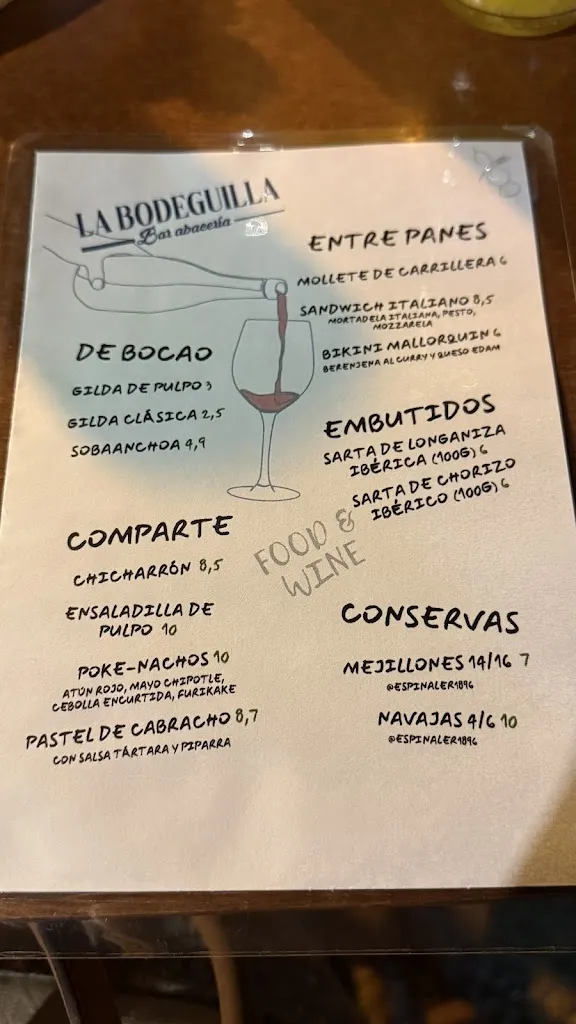 LA BODEGUILLA
Bar abacería
DE BOCAO
GILDA DE PULPO 3
GILDA CLÁSICA 2,5
SOBAANCHOA 4,9
COMPARTE
CHICHARRÓN 8,5
ENSALADILLA DE
PULPO 10
POKE-NACHOS 10
ATÚN ROJO, MAYO CHIPOTLE,
CEBOLLA ENCURTIDA, FURIKAKE
PASTEL DE CABRACHO 8,7
CON SALSA TÁRTARA Y PIPARRA
FOOD &
WINE
ENTRE PANES
MOLLETE DE CARRILLERA 6
SANDWICH ITALIANO 8,5
MORTADELA ITALIANA, PESTO,
MOZZARELA
BIKINI MALLORQUIN 6
BERENJENA AL CURRY Y QUESO EDAM
EMBUTIDOS
SARTA DE LONGANIZA
IBÉRICA (100G) 6
SARTA DE CHORIZO
IBÉRICO (100G) 6
CONSERVAS
MEJILLONES 14/16 7
@ESPINALER1896
NAVAJAS 4/6 10
@ESPINALER1896